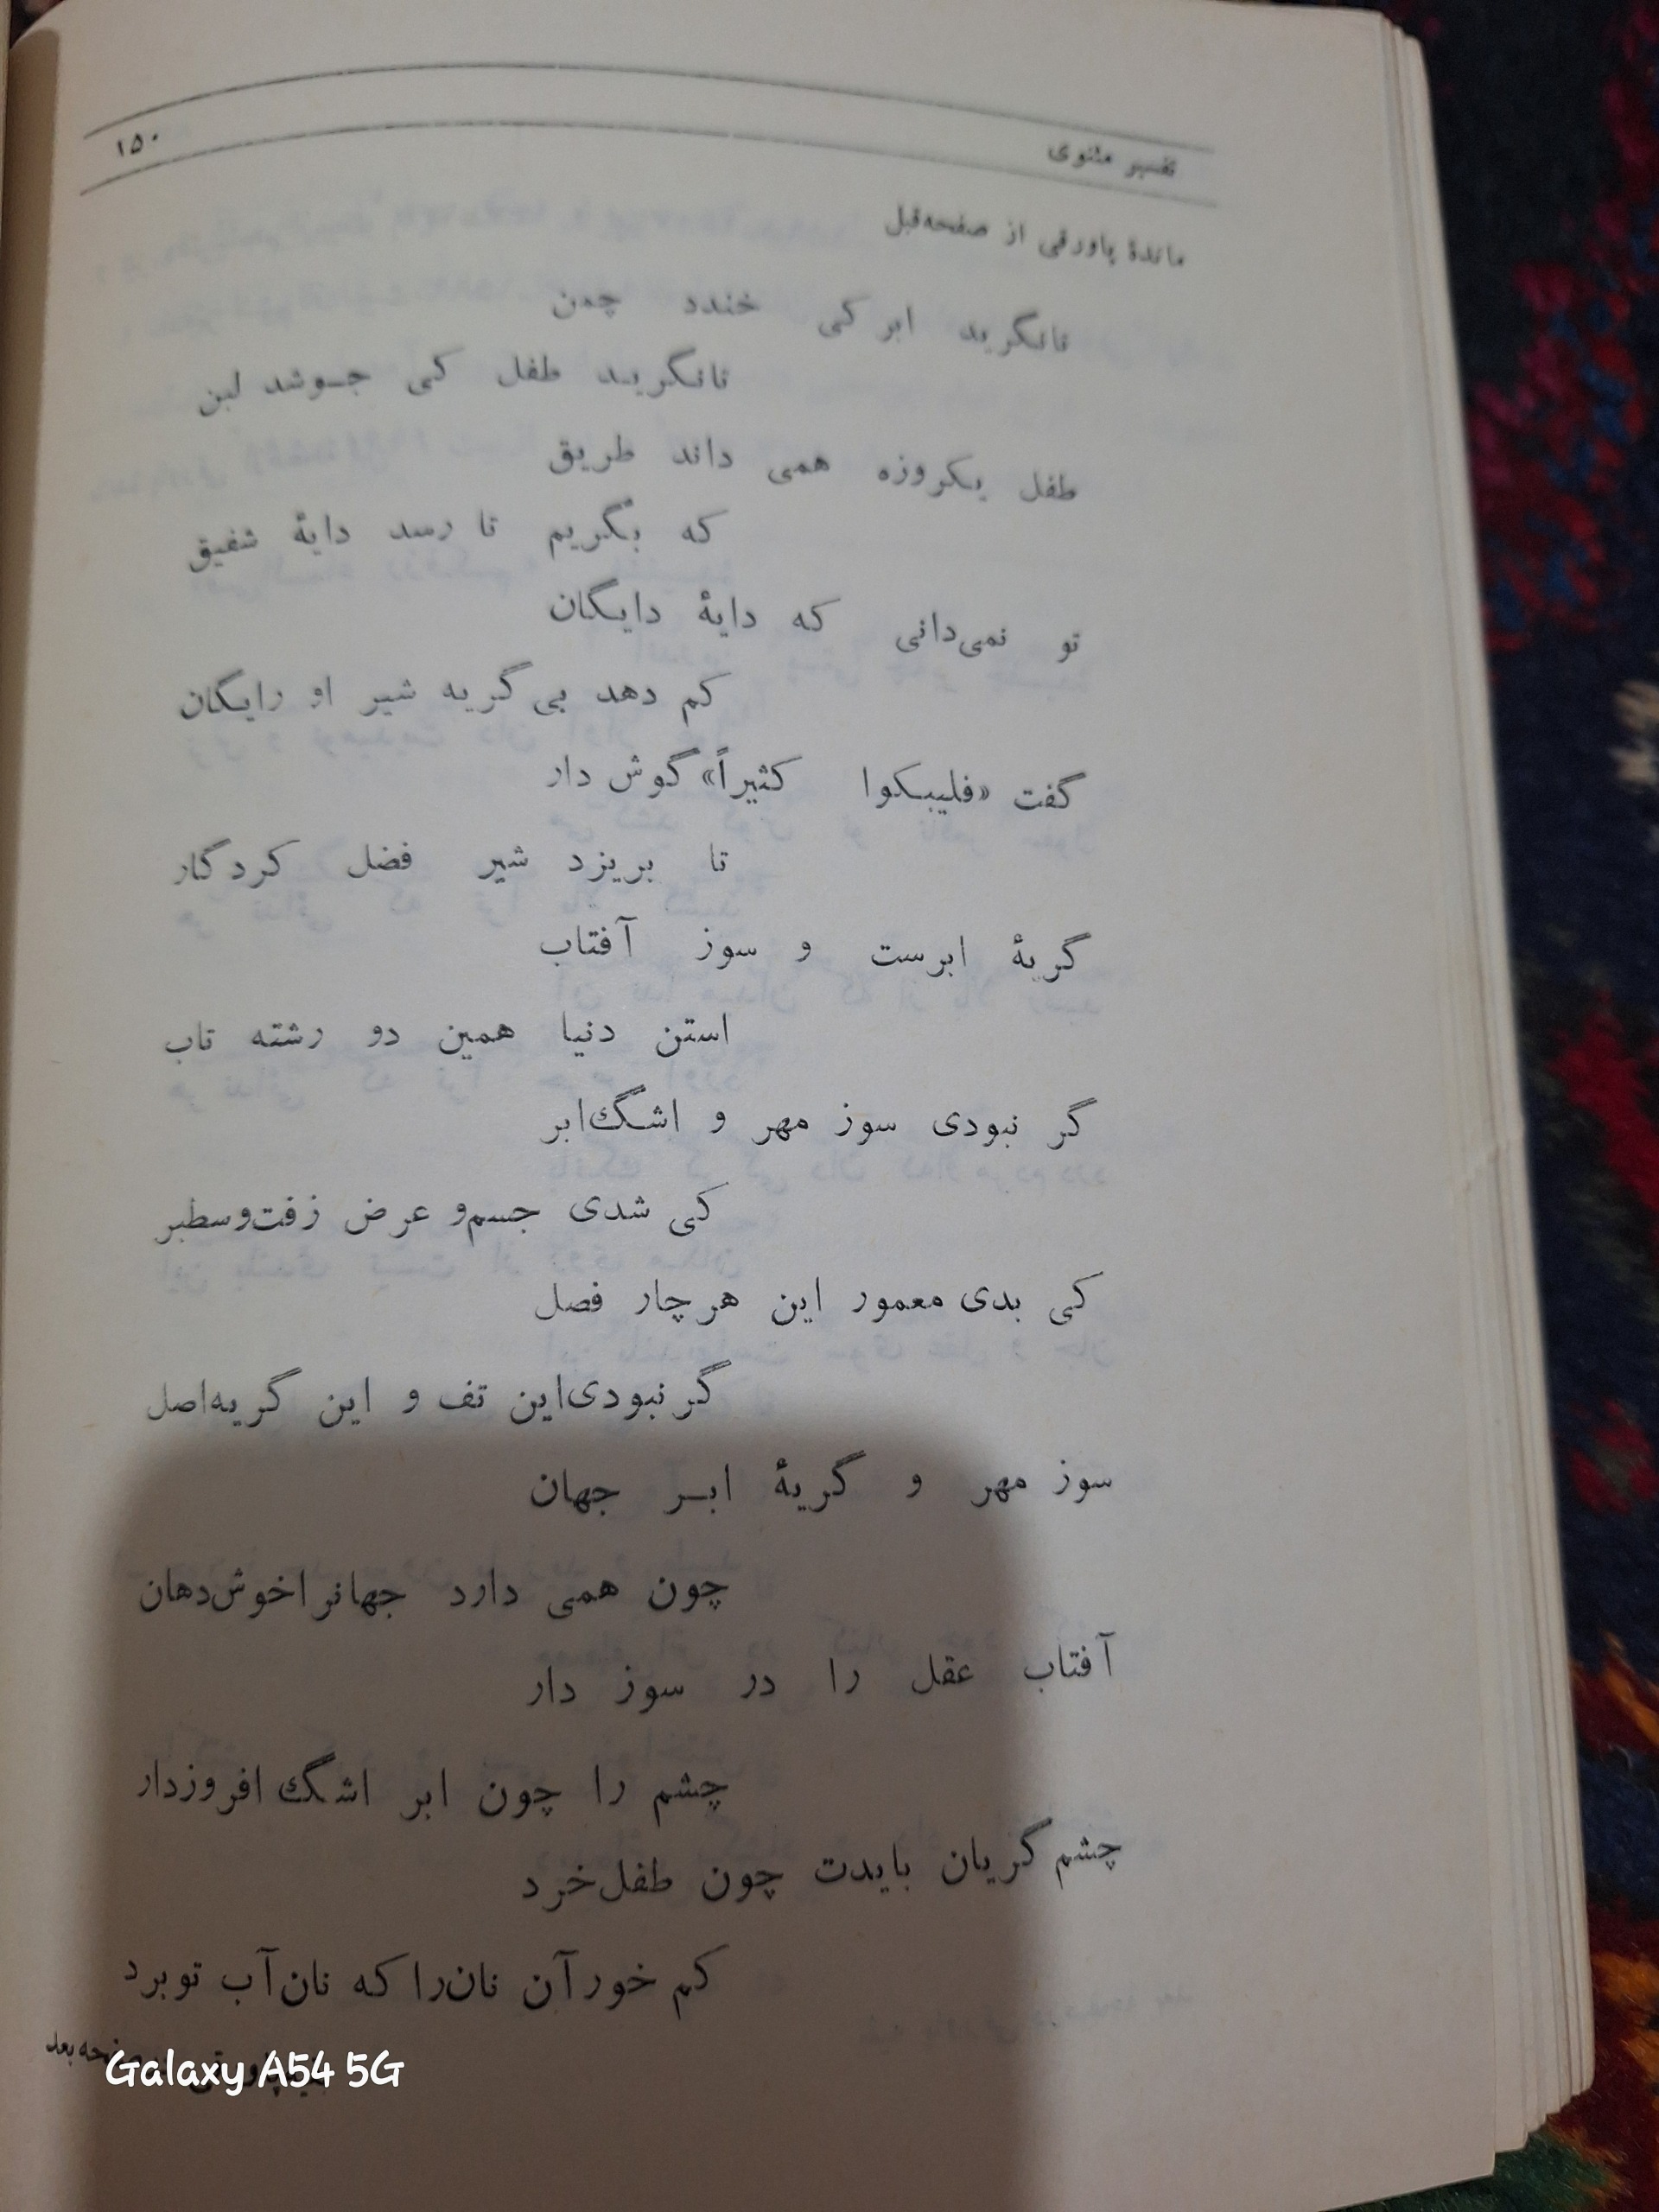 تفسیر مثنوی ۱۵۰
ماندهٔ پاورقی از صفحه‌قبل
تانگرید ابر کی خندد چمن
تانگرید طفل کی جوشد لبن
طفل یکروزه همی داند طریق
که بگریم تا رسد دایهٔ شفیق
تو نمی‌دانی که دایهٔ دایگان
کم دهد بی گریه شیر او رایگان
گفت «فلیبکوا کثیراً» گوش دار
تا بریزد شیر فضل کردگار
گریهٔ ابرست و سوز آفتاب
استن دنیا همین دو رشته تاب
گر نبودی سوز مهر و اشگ‌ابر
کی شدی جسم‌و عرض زفت‌وسطبر
کی بدی معمور این هرچار فصل
گر نبودی‌این تف و این گریه‌اصل
سوز مهر و گریهٔ ابر جهان
چون همی دارد جهانرا خوش‌دهان
آفتاب عقل را در سوز دار
چشم را چون ابر اشگ افروزدار
چشم گریان بایدت چون طفل‌خرد
کم خور آن نان‌را که نان‌آب توبرد
صفحه‌بعد
Galaxy A54 5G